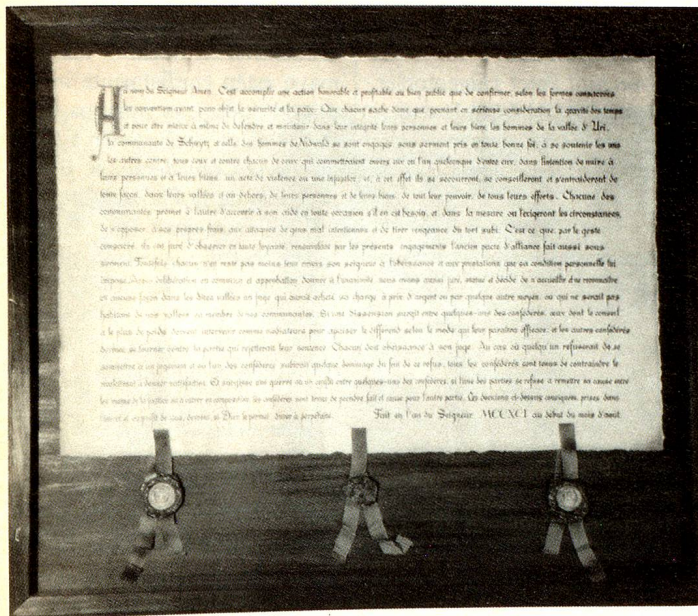 Au nom du Seigneur Amen. C'est accomplir une action honorable et profitable au bien public que de confirmer, selon les formes consacrées
les conventions ayant pour objet la sécurité et la paix. Que chacun sache donc que, prenant en sérieuse considération la gravité des temps
et pour être mieux à même de défendre et maintenir dans leur intégrité leurs personnes et leurs biens, les hommes de la vallée d'Uri,
la communauté de Schwytz et celle des hommes de Nidwald se sont engagés, sous serment pris en toute bonne foi, à se soutenir les uns
les autres contre tous ceux et contre chacun de ceux qui commettraient envers eux ou l'un quelconque d'entre eux, dans l'intention de nuire à
leurs personnes ou à leurs biens, un acte de violence ou une injustice, et, à cet effet ils se secourront, se conseilleront et s'entraideront de
toute façon, dans leurs vallées et au dehors, de leurs personnes et de leurs biens, de tout leur pouvoir, de tous leurs efforts. Chacune des
communautés promet à l'autre d'accourir à son aide en toute occasion s'il en est besoin, et dans la mesure où l'exigeront les circonstances,
de s'opposer, à ses propres frais, aux attaques de gens mal intentionnés et de tirer vengeance du tort subi. C'est ce que, par le geste
consacré, ils ont juré d'observer en toute loyauté, renouvelant par les présents engagements l'ancien pacte d'alliance fait aussi sous
serment. Toutefois chacun n'en reste pas moins tenu envers son seigneur à l'obéissance et aux prestations que sa condition personnelle lui
impose. Après délibération en commun et approbation donnée à l'unanimité nous avons aussi juré, statué et décidé de n'accueillir et reconnaître
en aucune façon dans les dites vallées un juge qui aurait acheté sa charge à prix d'argent ou par quelque autre moyen, ou qui ne serait pas
habitant de nos vallées ou membre de nos communautés. Si une dissension surgit entre quelques-uns des confédérés, ceux dont le conseil
a le plus de poids doivent intervenir comme médiateurs pour apaiser le différend selon le mode qui leur paraîtra efficace, et les autres confédérés
devront se tourner contre la partie qui rejetterait leur sentence. Chacun doit obéissance à son juge. Au cas où quelqu'un refuserait de se
soumettre à un jugement et où l'un des confédérés subirait quelque dommage du fait de ce refus, tous les confédérés sont tenus de contraindre le
récalcitrant à donner satisfaction. Et surgisse une guerre ou un conflit entre quelques-uns des confédérés, si l'une des parties se refuse à remettre sa cause entre
les mains de la justice ou à entrer en composition les confédérés sont tenus de prendre fait et cause pour l'autre partie. Les décisions ci-dessus consignées, prises dans
l'intérêt et au profit de tous, doivent, si Dieu le permet, durer à perpétuité. Fait en l'an du Seigneur MCCXCI au début du mois d'août